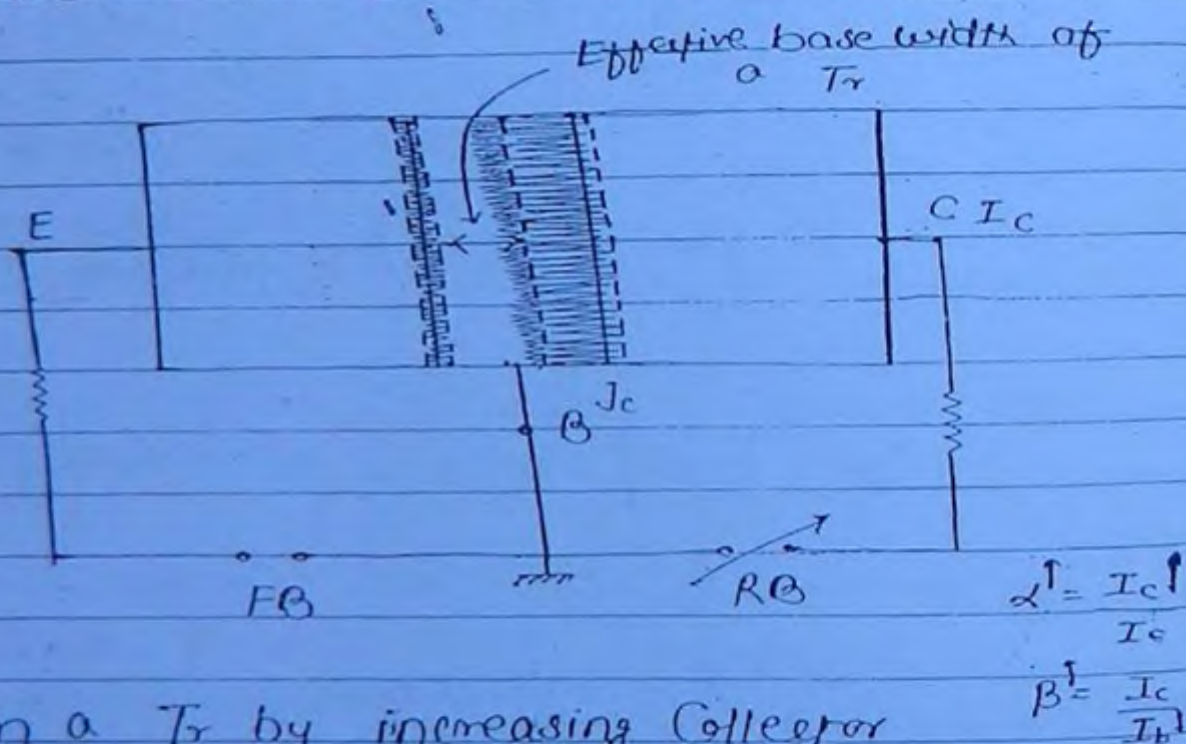 Effective base width of
a Tr
E
C I_C
J_C
B
FB
RB
α↑ = I_C↑
I_C
β↑ = I_C
I_b↓
n a Tr by increasing Collector